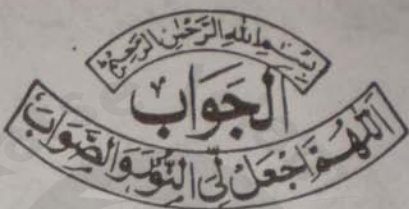 بِسْمِ اللهِ الرَّحْمٰنِ الرَّحِيْمِ
اَلجَوَابْ
اَللّٰهُمَّ اجْعَلْ لِّي النُّوْرَ وَالصَّوَابَ